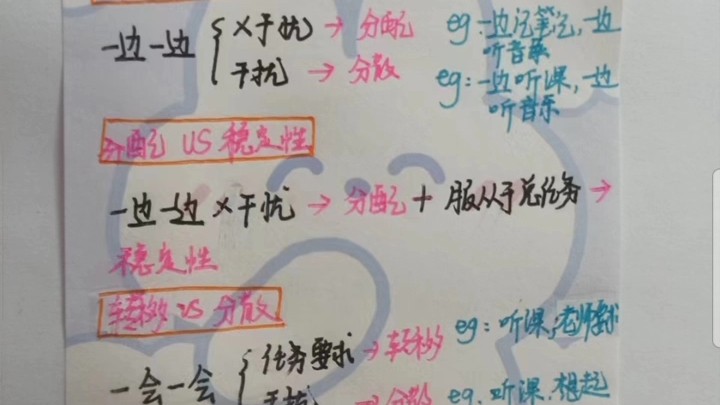 一边一边 { ×干扰 → 分配 eg:一边记笔记,一边听音乐
干扰 → 分散 eg:一边听课,一边听音乐
分配 VS 稳定性
一边一边×干扰 → 分配 + 服从于总任务 →
稳定性
转移 VS 分散
一会一会 { 任务要求 → 转移 eg:听课,老师要求
干扰 → 分散 eg.听课,想起